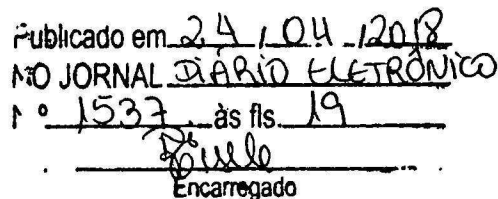 Publicado em 24 / 04 / 2018
NO JORNAL DIÁRIO ELETRÔNICO
Nº 1537 às fls. 19
Encarregado